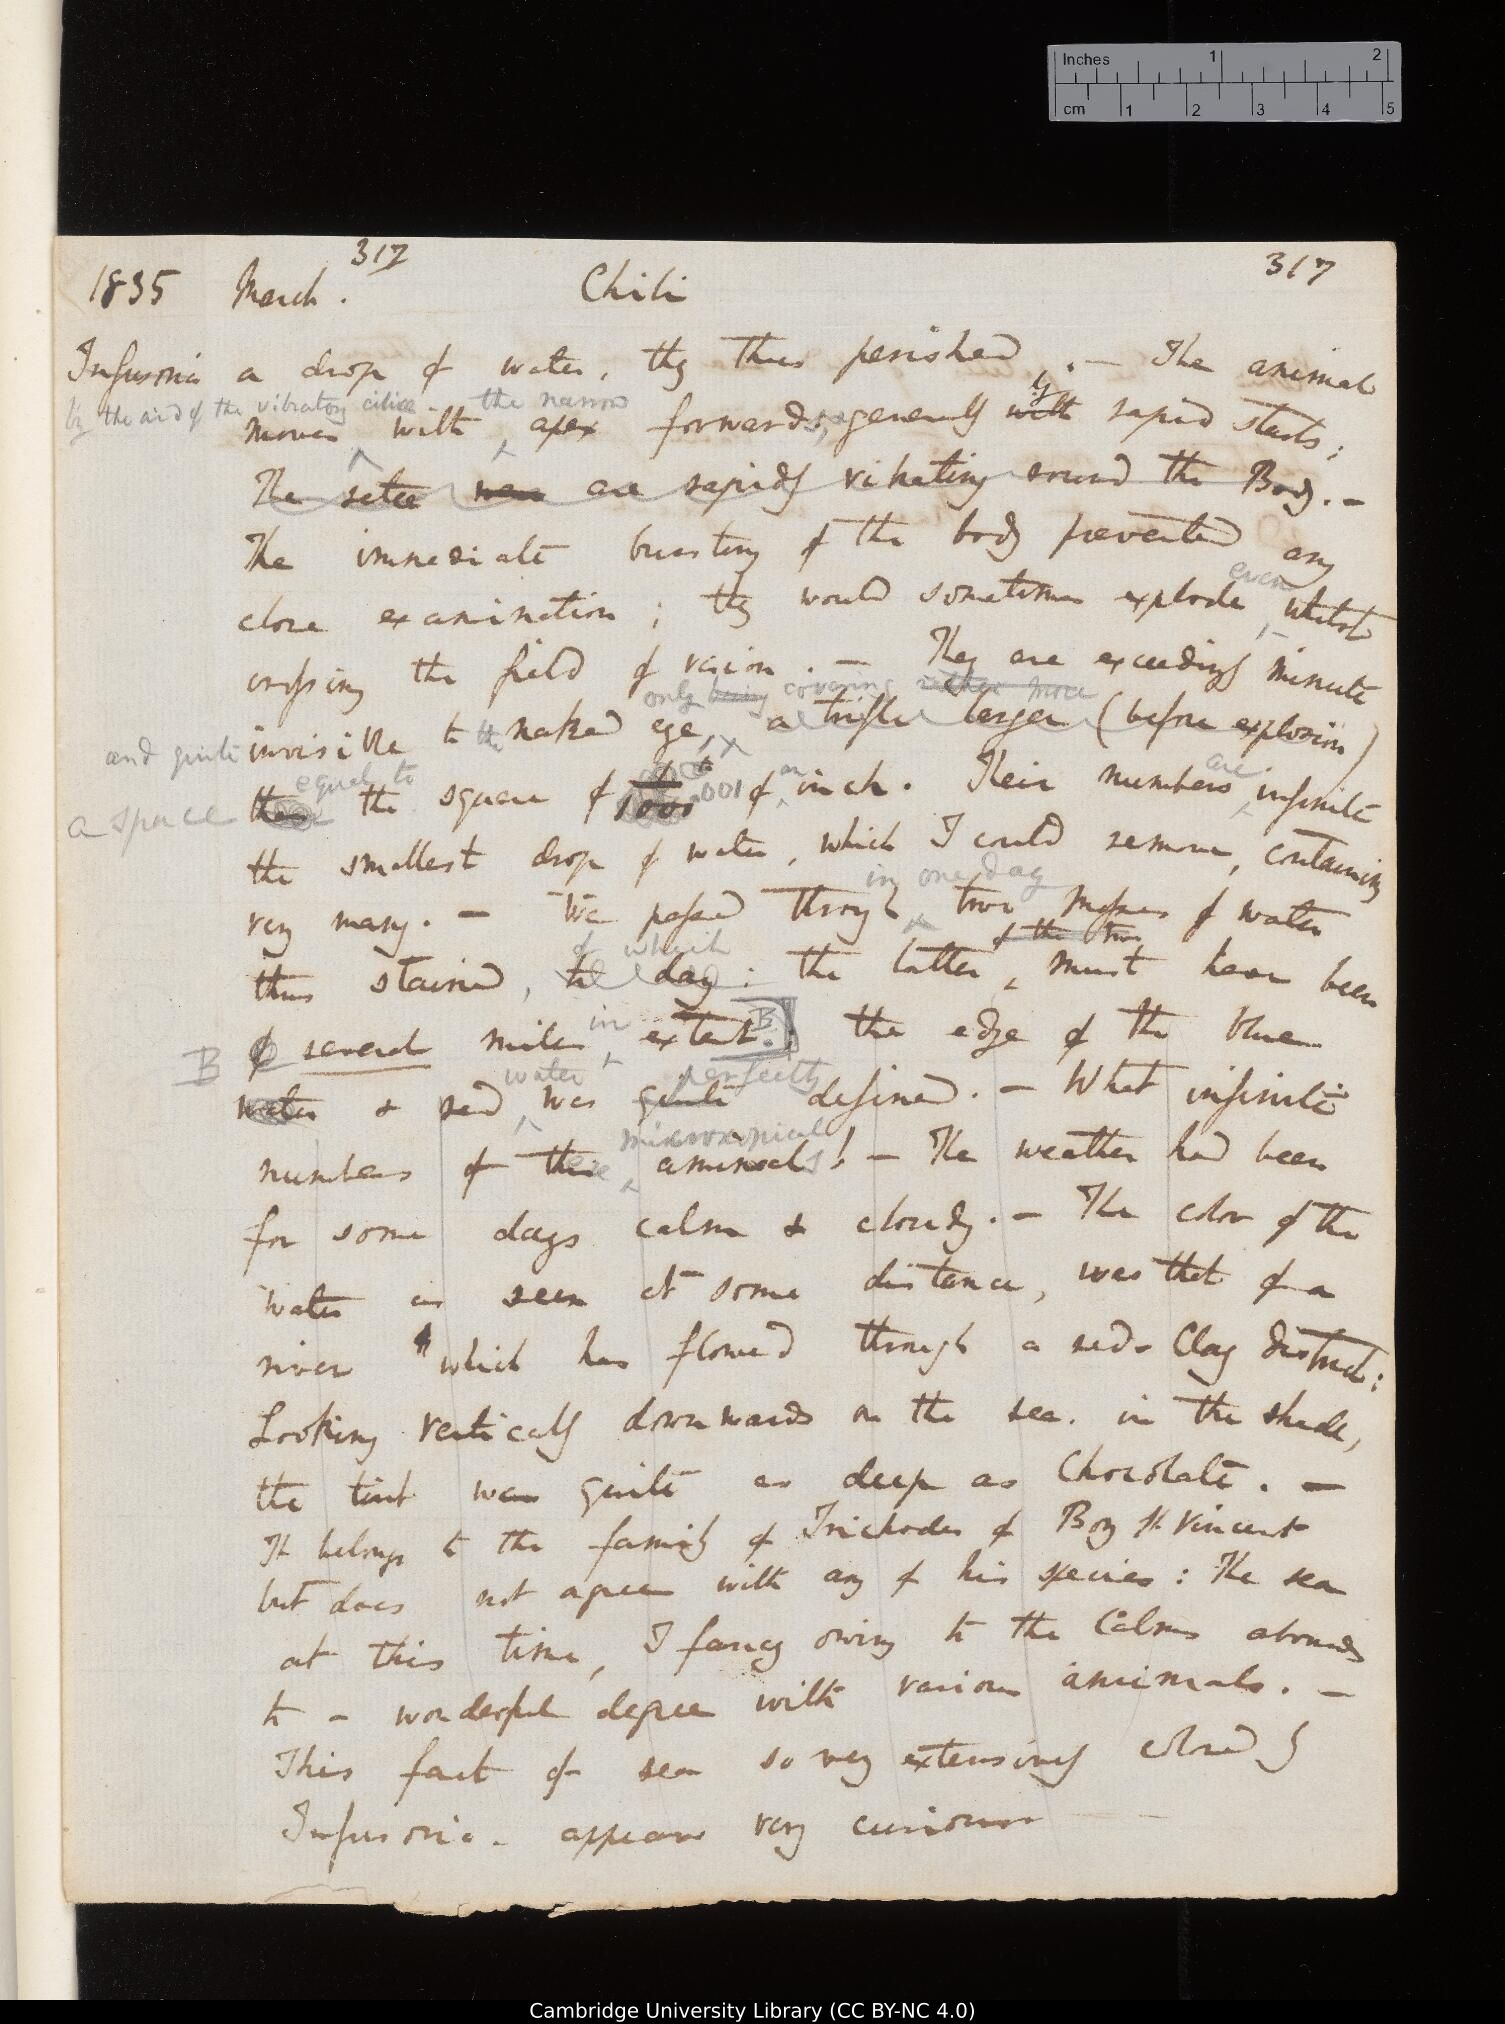 Inches 1 2
cm 1 2 3 4 5
317
1835 March. Chili 317
Infusoria a drop of water, they thus perished. — The animal
by the aid of the vibratory ciliae the narrow
moves with apex forwards, generally with by rapid starts;
The setae were are rapidly vibrating round the Body. —
The immediate bursting of the body prevented any
close examination; they would sometimes explode even whilst
crossing the field of vision. — They are exceedingly minute
only being covering rather more
and quite invisible to the naked eye, a trifle larger (before explosion)
a space than equal to the square of 1/1000 .001 of an inch. Their numbers are infinite
the smallest drop of water, which I could remove, containing
very many. — We passed through in one day two masses of water
of which of the two
thus stained, to day: the latter must have been
B of several miles in extent. B; the edge of the blue
water perfectly
water & red was quite defined. — What infinite
microscopical
numbers of these animals! — The weather had been
for some days calm & cloudy. — The color of the
water as seen at some distance, was that of a
river which has flowed through a red clay district:
Looking vertically downwards on the sea. in the shade,
the tint was quite as deep as Chocolate. —
It belongs to the family of Trichodes of Bory St Vincent
but does not agree with any of his species: The sea
at this time, I fancy owing to the Calms abounds
to a wonderful degree with various animals. —
This fact of sea so very extensively colored by
Infusoria. appears very curious
Cambridge University Library (CC BY-NC 4.0)